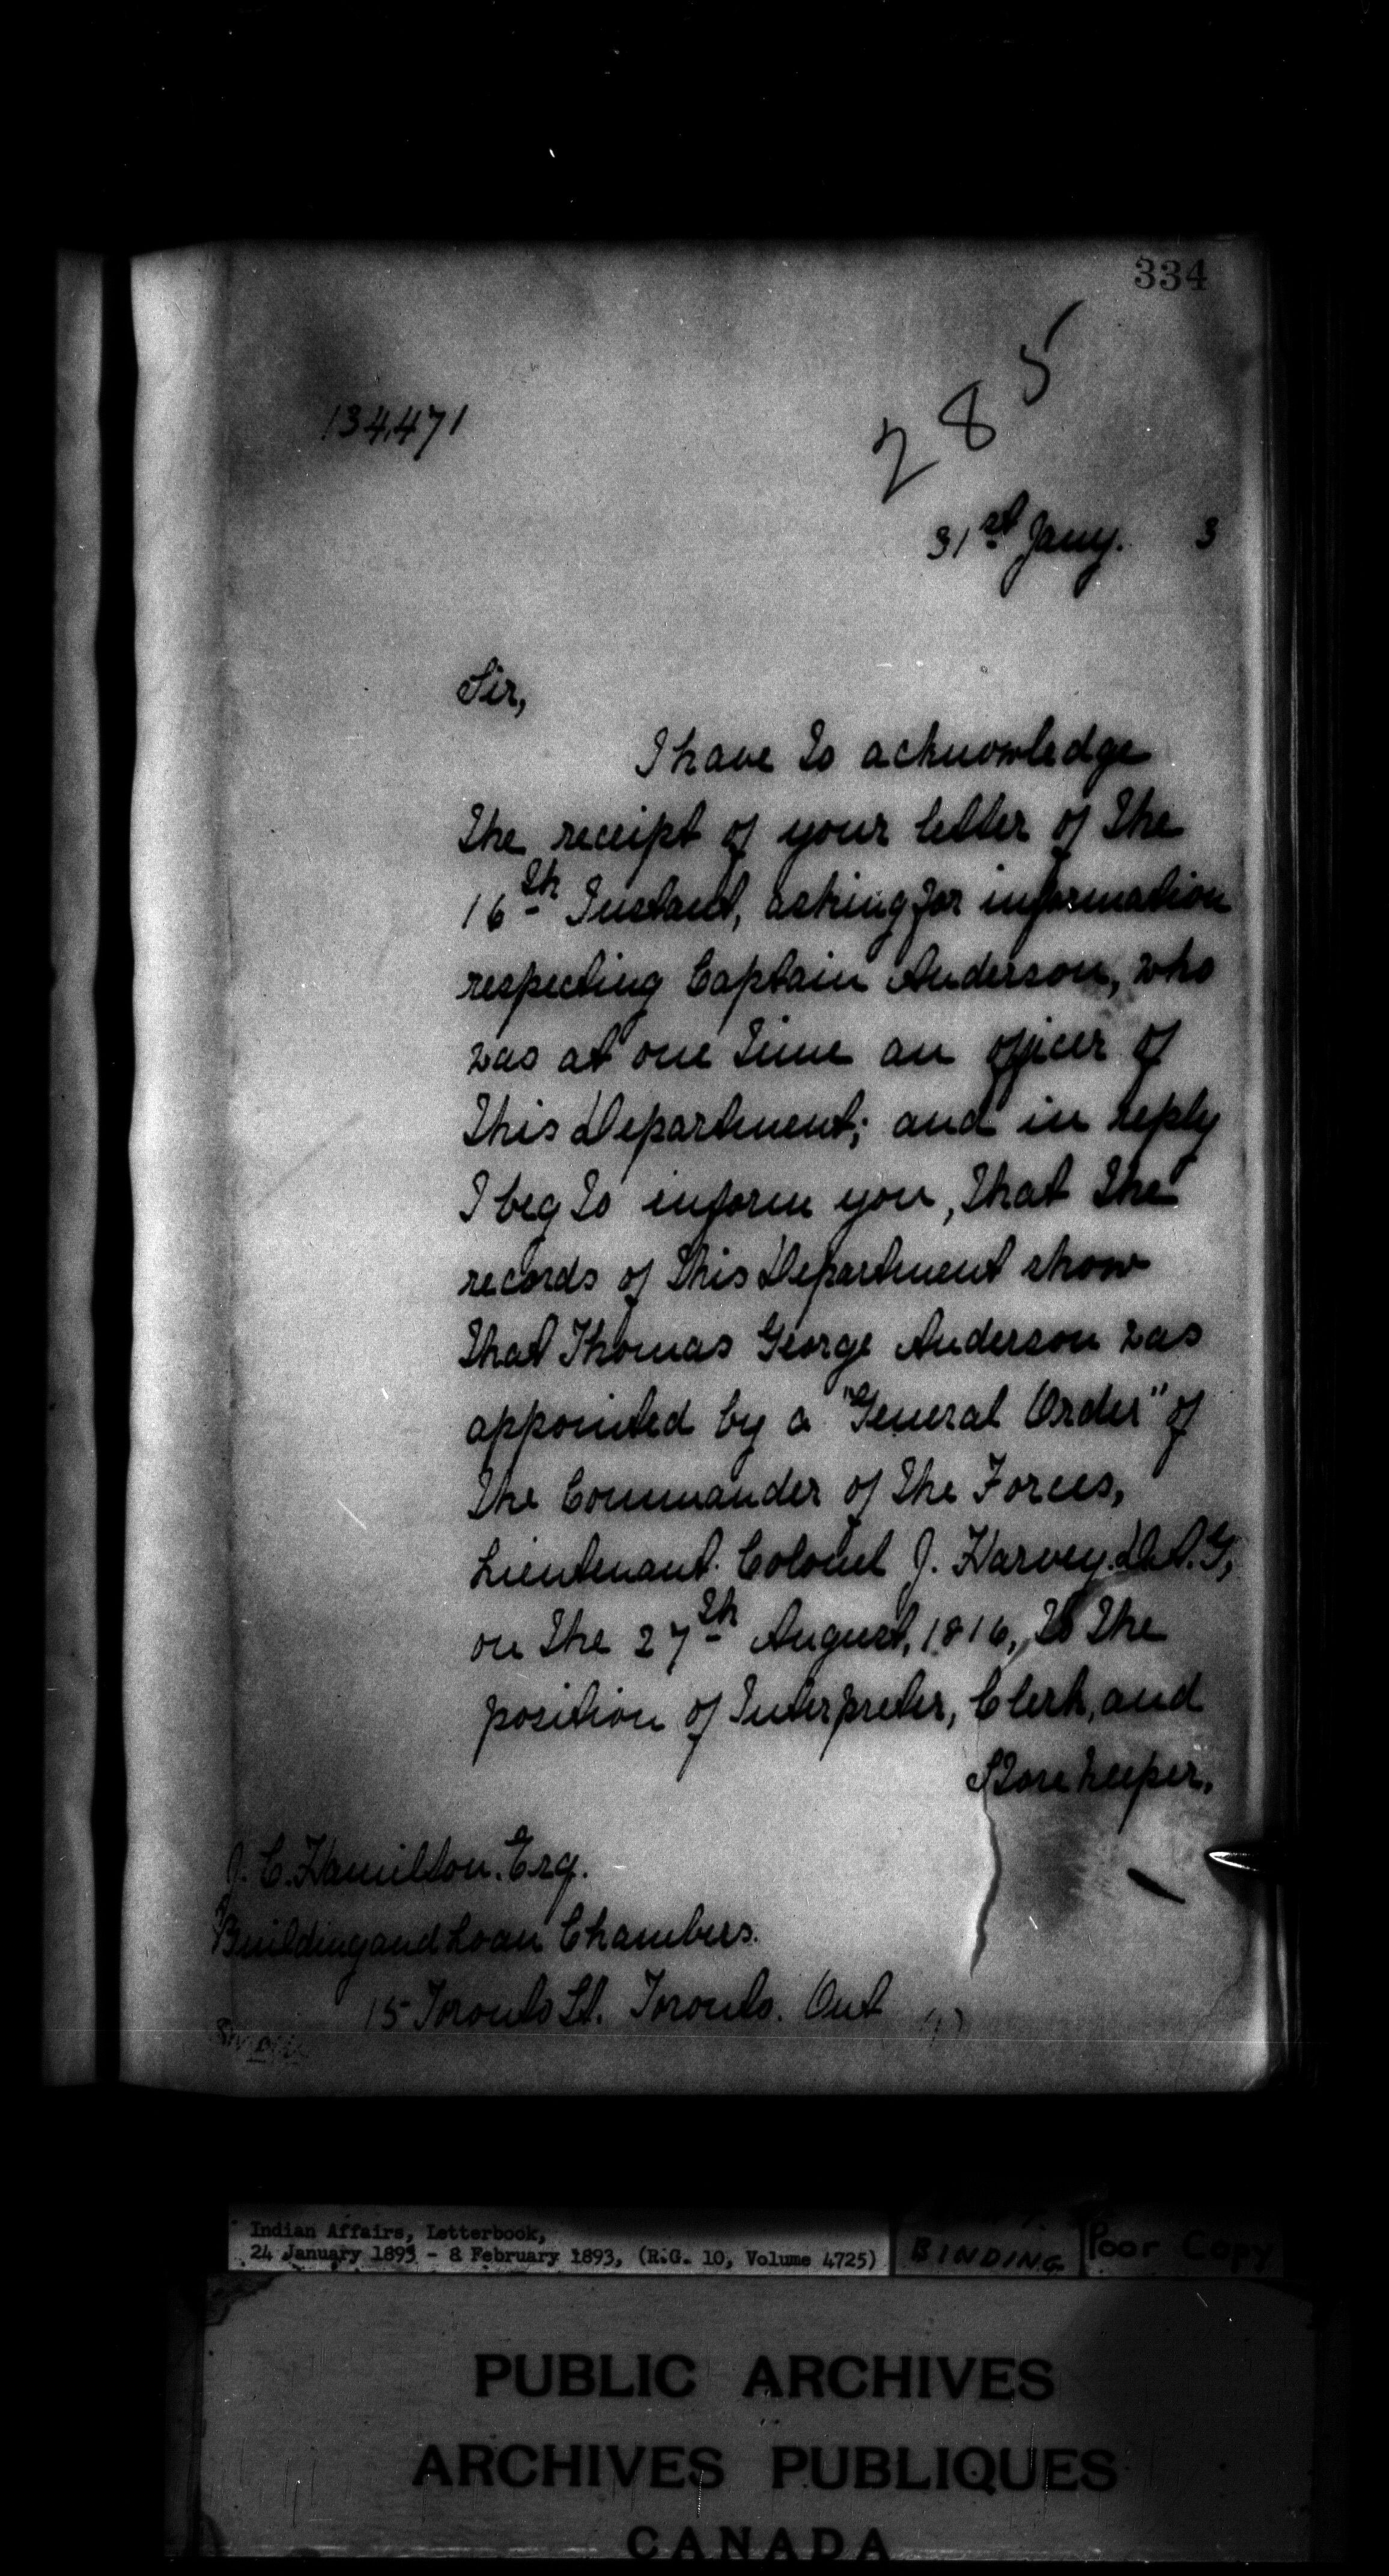 334
285
134,471
31st Jany. 3
Sir,
I have to acknowledge
the receipt of your letter of the
16th Instant, asking for information
respecting Captain Anderson, who
was at one time an officer of
this Department; and in reply
I beg to inform you, that the
records of this Department show
that Thomas George Anderson was
appointed by a "General Order" of
the Commander of the Forces,
Lieutenant. Colonel J. Harvey. D.A.G,
on the 27th August, 1816, to the
position of Interpreter, Clerk, and
Storekeeper.
J. C. Hamilton. Esq.
Building and Loan Chambers.
15 Toronto St. Toronto. Ont
Indian Affairs, Letterbook,
24 January 1893 - 8 February 1893, (R.G. 10, Volume 4725)
BINDING
Poor Copy
PUBLIC ARCHIVES
ARCHIVES PUBLIQUES
CANADA